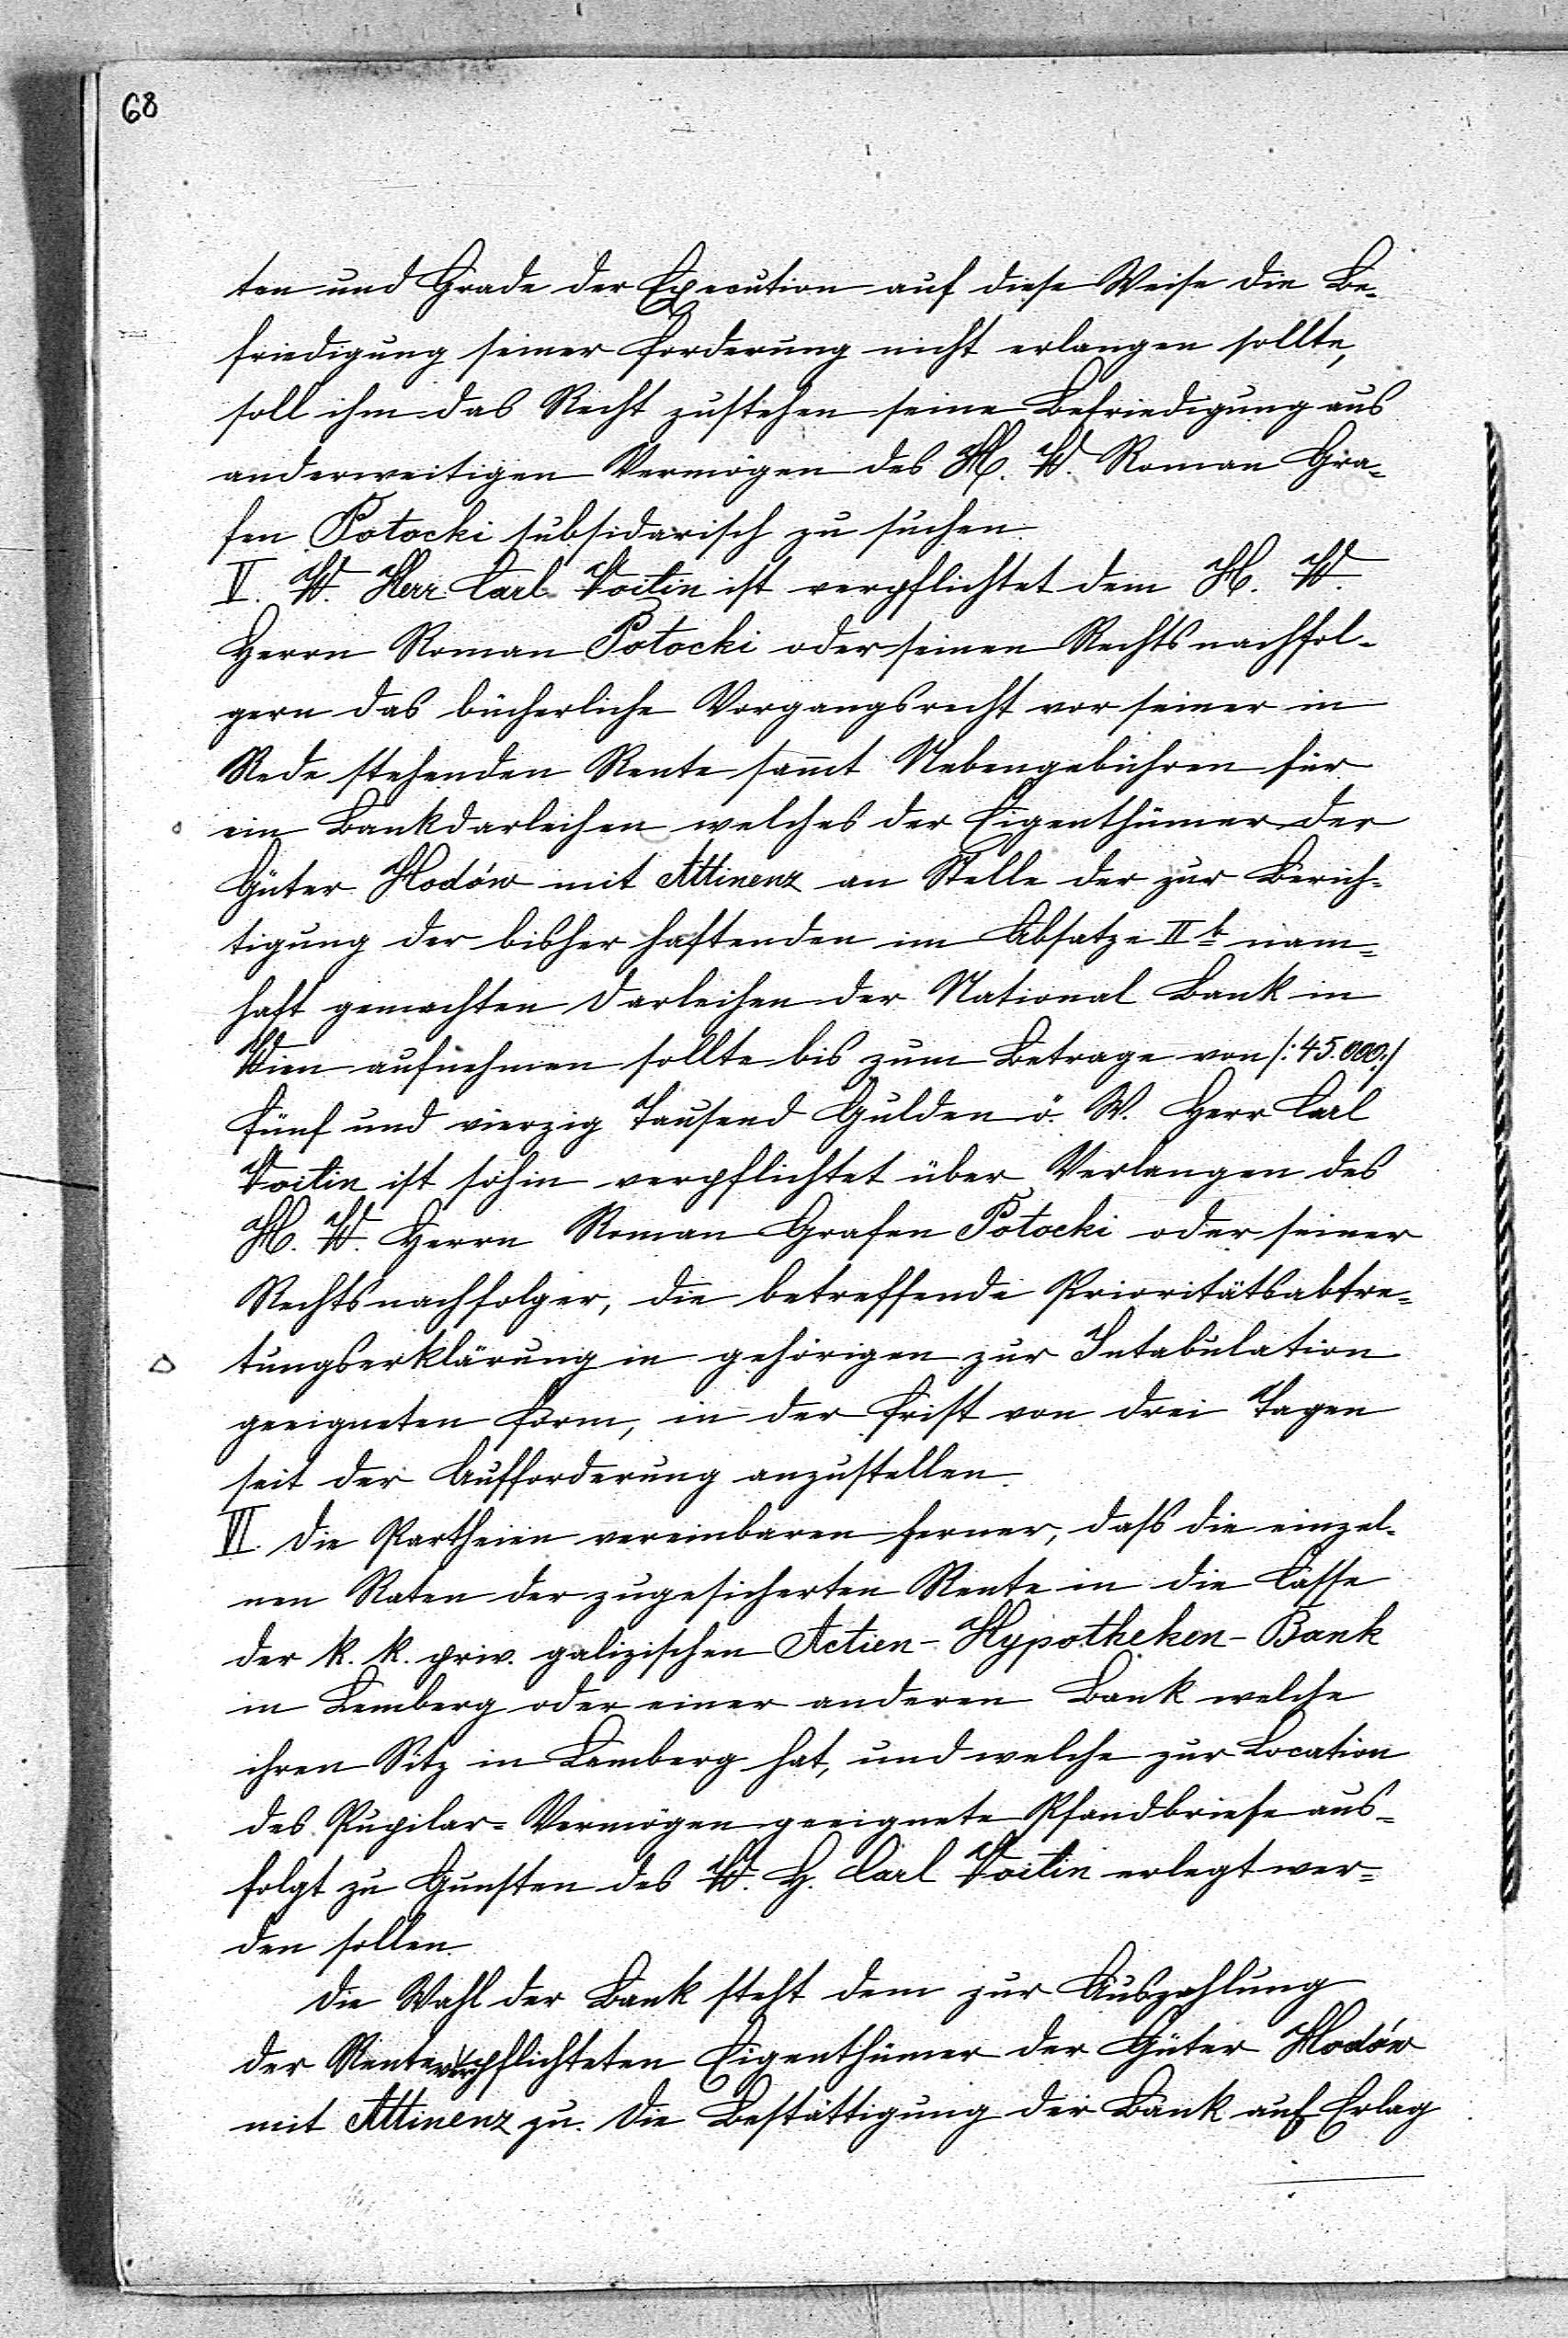 68
ten und Grade der Execution auf diese Weise die Be-
friedigung seiner Forderung nicht erlangen sollte,
soll ihm das Recht zustehen seine Befriedigung aus
anderweitigen Vermögen des H. W. Roman Gra-
fen Potocki subsidarisch zu suchen.
V. W. Herr Carl Voitin ist verpflichtet dem H. W.
Herrn Roman Potocki oder seinen Rechtsnachfol-
gern das bücherliche Vorgangsrecht vor seiner in
Rede stehenden Rente samt Nebengebühren für
ein Bankdarleihen welches der Eigenthümer der
Güter Hodów mit Attinenz an Stelle der zur Berich-
tigung der bisher haftenden im Absatze II b nam-
haft gemachten Darleihen der National Bank in
Wien aufnehmen sollte bis zum Betrage von /:45.000:/
fünf und vierzig Tausend Gulden ö. W. Herr Carl
Voitin ist sohin verpflichtet über Verlangen des
H. W. Herrn Roman Grafen Potocki oder seiner
Rechtsnachfolger, die betreffende Prioritätsabtre-
tungserklärung in gehörigen zur Intabulation
geeigneten Form, in der Frist von drei Tagen
seit der Aufforderung anzustellen.
VI. Die Partheien vereinbaren ferner, daß die einzel-
nen Raten der zugesicherten Rente in die Casse
der k. k. priv. galizischen Actien-Hypotheken-Bank
in Lemberg oder einer anderen Bank welche
ihren Sitz in Lemberg hat, und welche zur Location
des Pupilar-Vermögen geeignete Pfandbriefe aus-
folgt zu Gunsten des W. H. Carl Voitin erlegt wer-
den sollen.
Die Wahl der Bank steht dem zur Auszahlung
der Rente verpflichteten Eigenthümer der Güter Hodów
mit Attinenz zu. Die Bestättigung der Bank auf Erlag